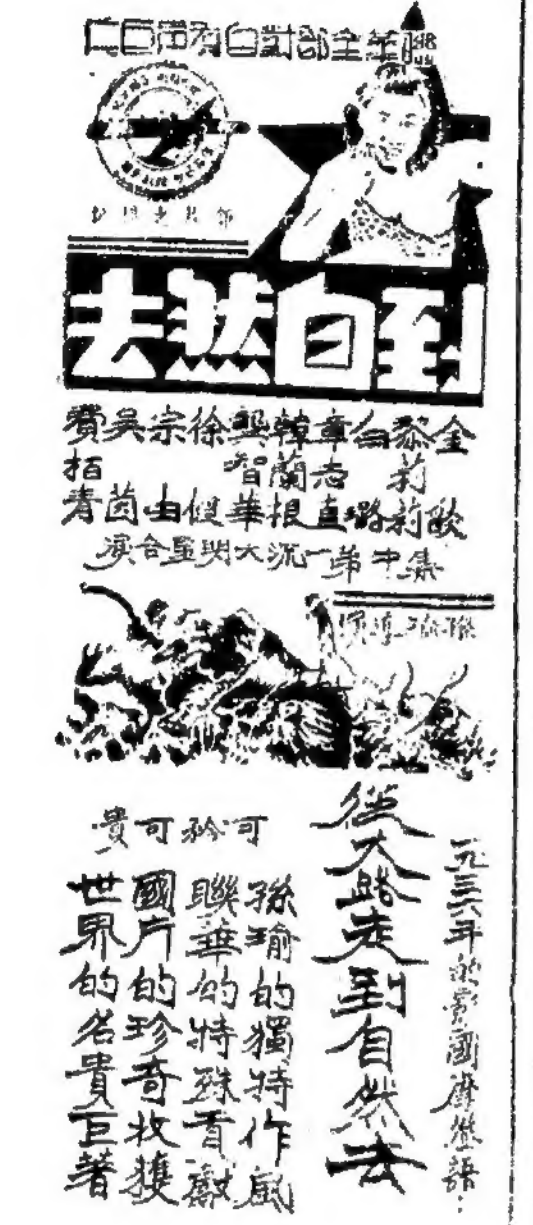 聯華全部對白有声巨片
到自然去
金焰
黎莉莉
白璐
章志直
韓蘭根
龔智華
徐
宗由
吳茵
費柏青
集中第一流大明星合演
孫瑜導演
一九三六年的影國摩登語：
從大路走到自然去
可矜可貴
孫瑜的獨特作風
聯華的特殊貢獻
國片的珍奇收獲
世界的名貴巨著